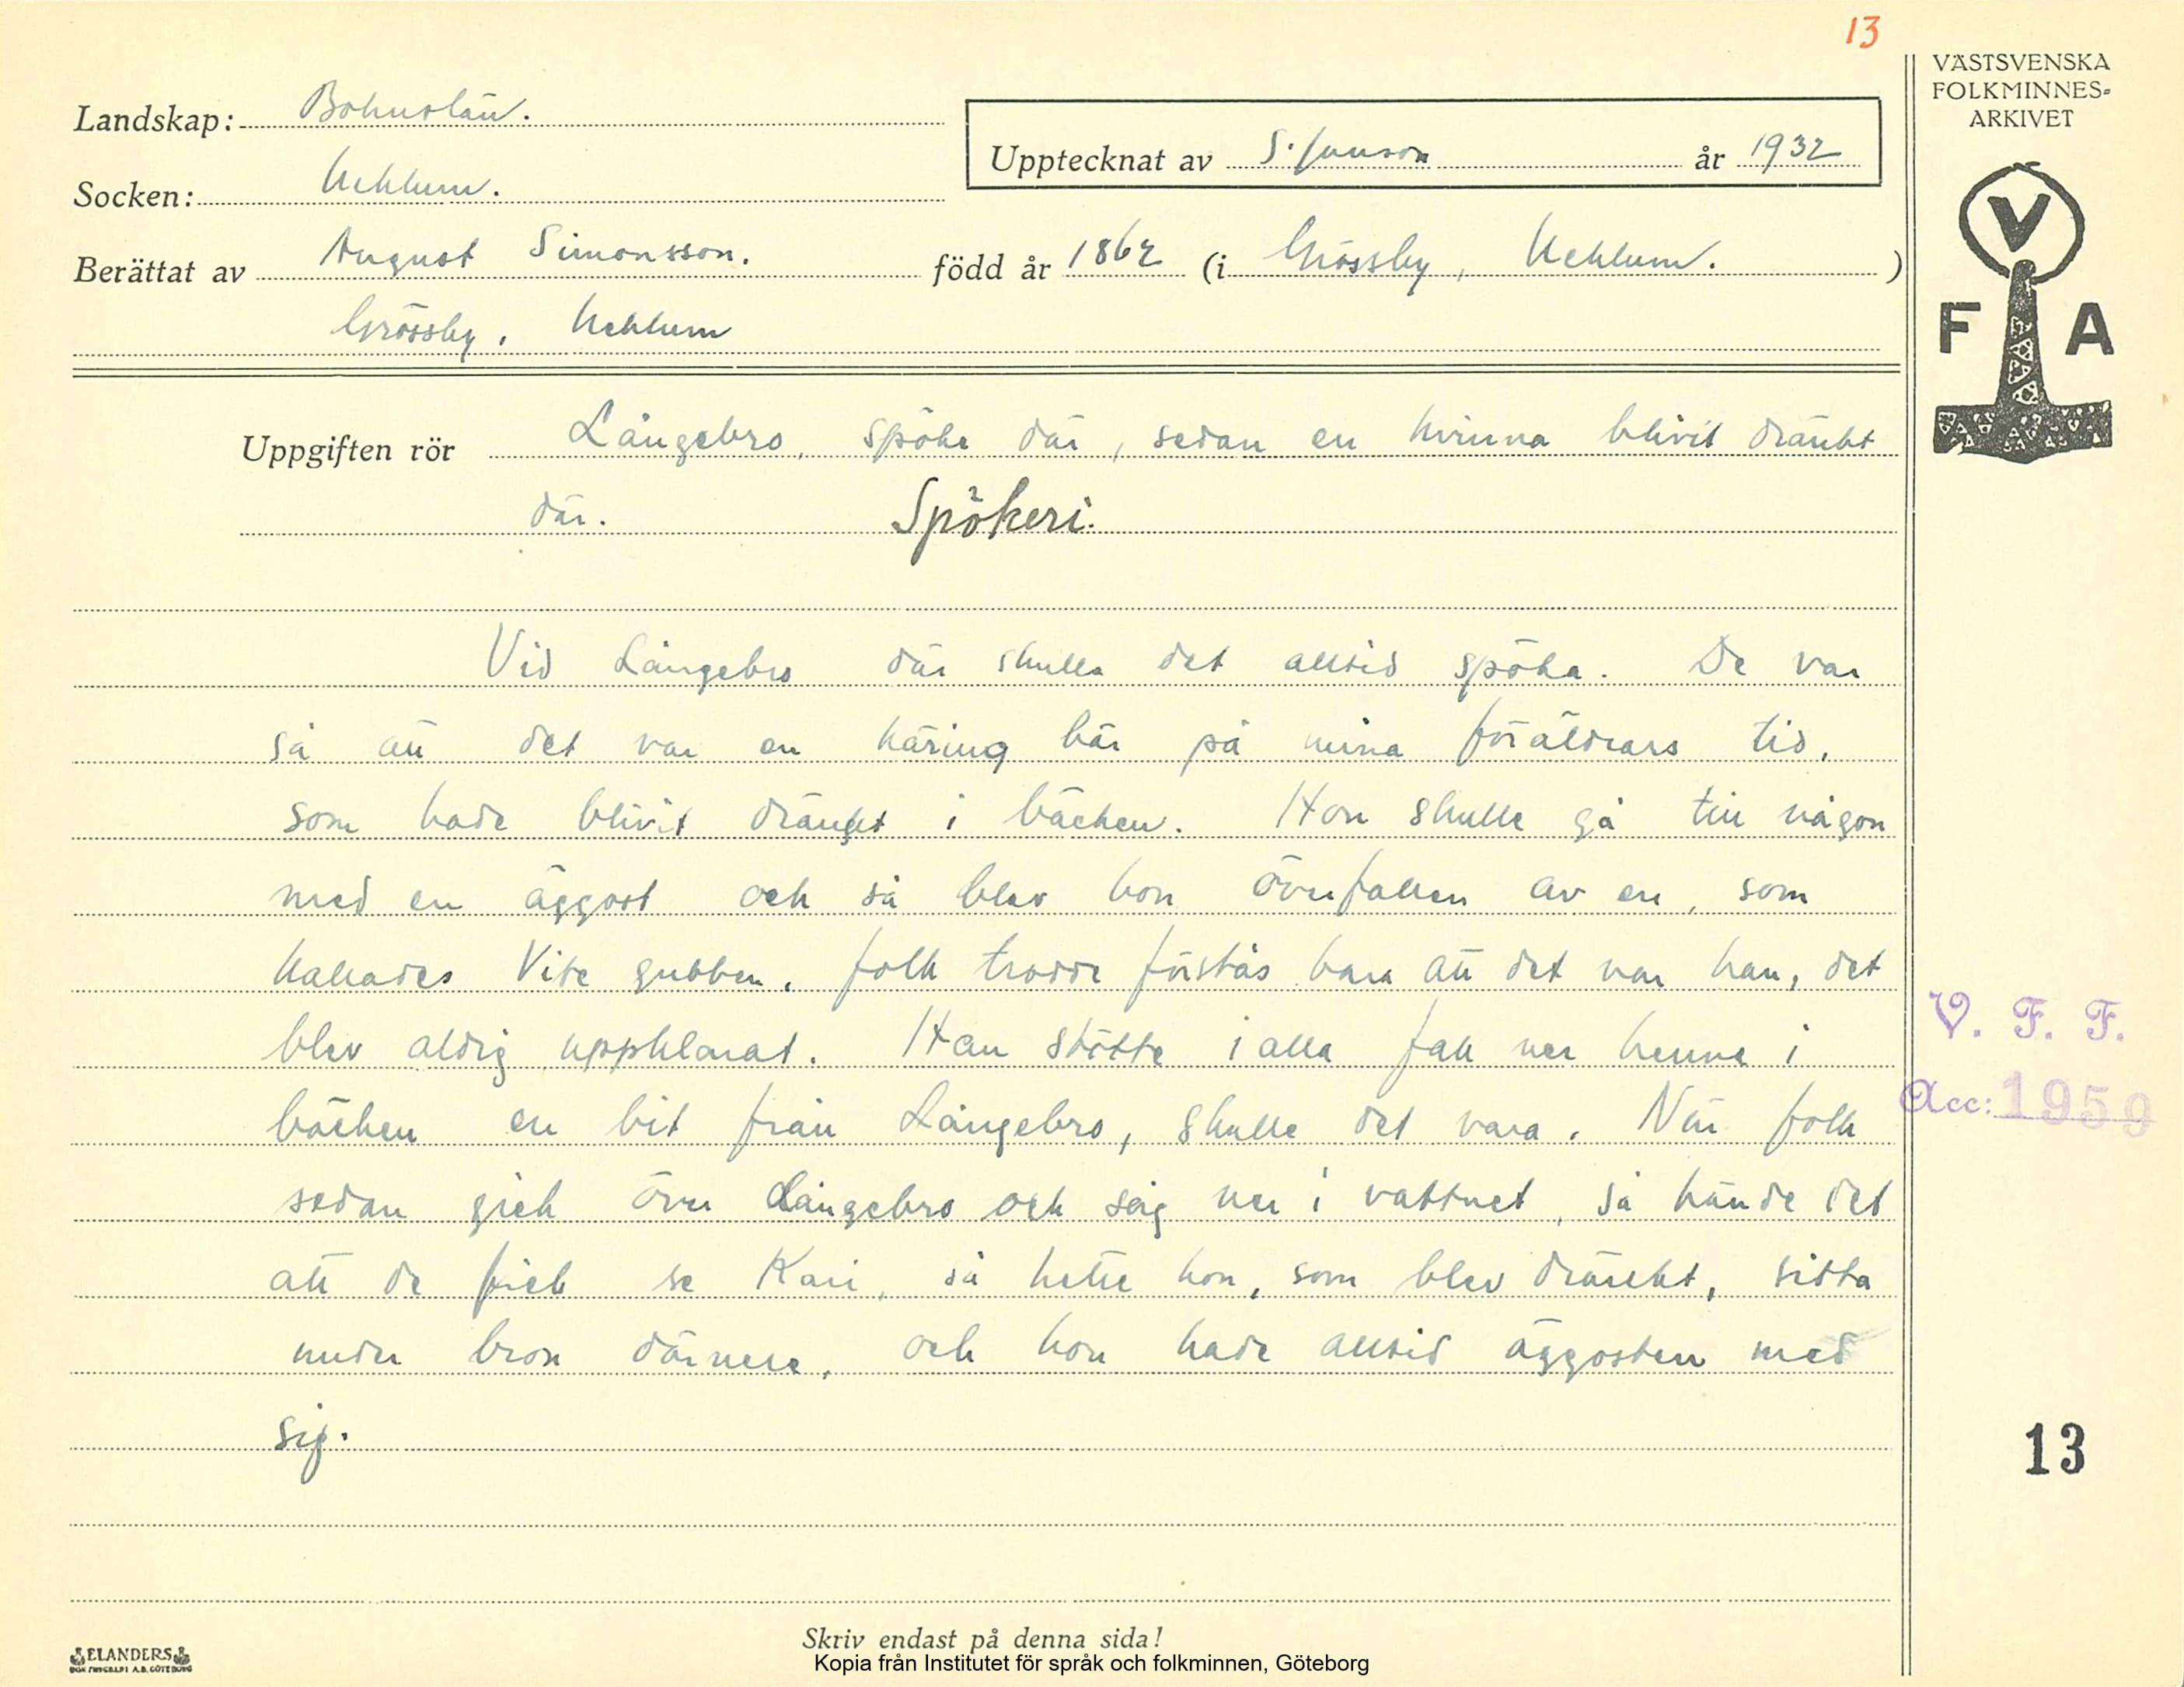 13
VÄSTSVENSKA
FOLKMINNES-
ARKIVET
Landskap: Bohuslän.
Upptecknat av S. Janson år 1932
Socken: Ucklum.
Berättat av August Simonsson. född år 1862 (i Grössby, Ucklum. )
Grössby, Ucklum
V
F A
Uppgiften rör Långebro, spöke där, sedan en kvinna blivit dränkt
där. Spökeri.
Vid Långebro där skulle det alltid spöka. De var
så att det var en käring här på mina föräldrars tid,
som hade blivit dränkt i bäcken. Hon skulle gå till någon
med en äggost och så blev hon överfallen av en, som
kallades Vite gubben. folk trodde förstås bara att det var han, det
blev aldrig uppklarat. Han stötte i alla fall ner henne i
bäcken en bit från Långebro, skulle det vara. När folk
sedan gick över Långebro och såg ner i vattnet, så hände det
att de fick se Kari, så hette hon, som blev dränkt, sitta
under bron därnere, och hon hade alltid äggosten med
sig.
V. F. F.
Acc: 1959
13
Skriv endast på denna sida!
ELANDERS
Kopia från Institutet för språk och folkminnen, Göteborg